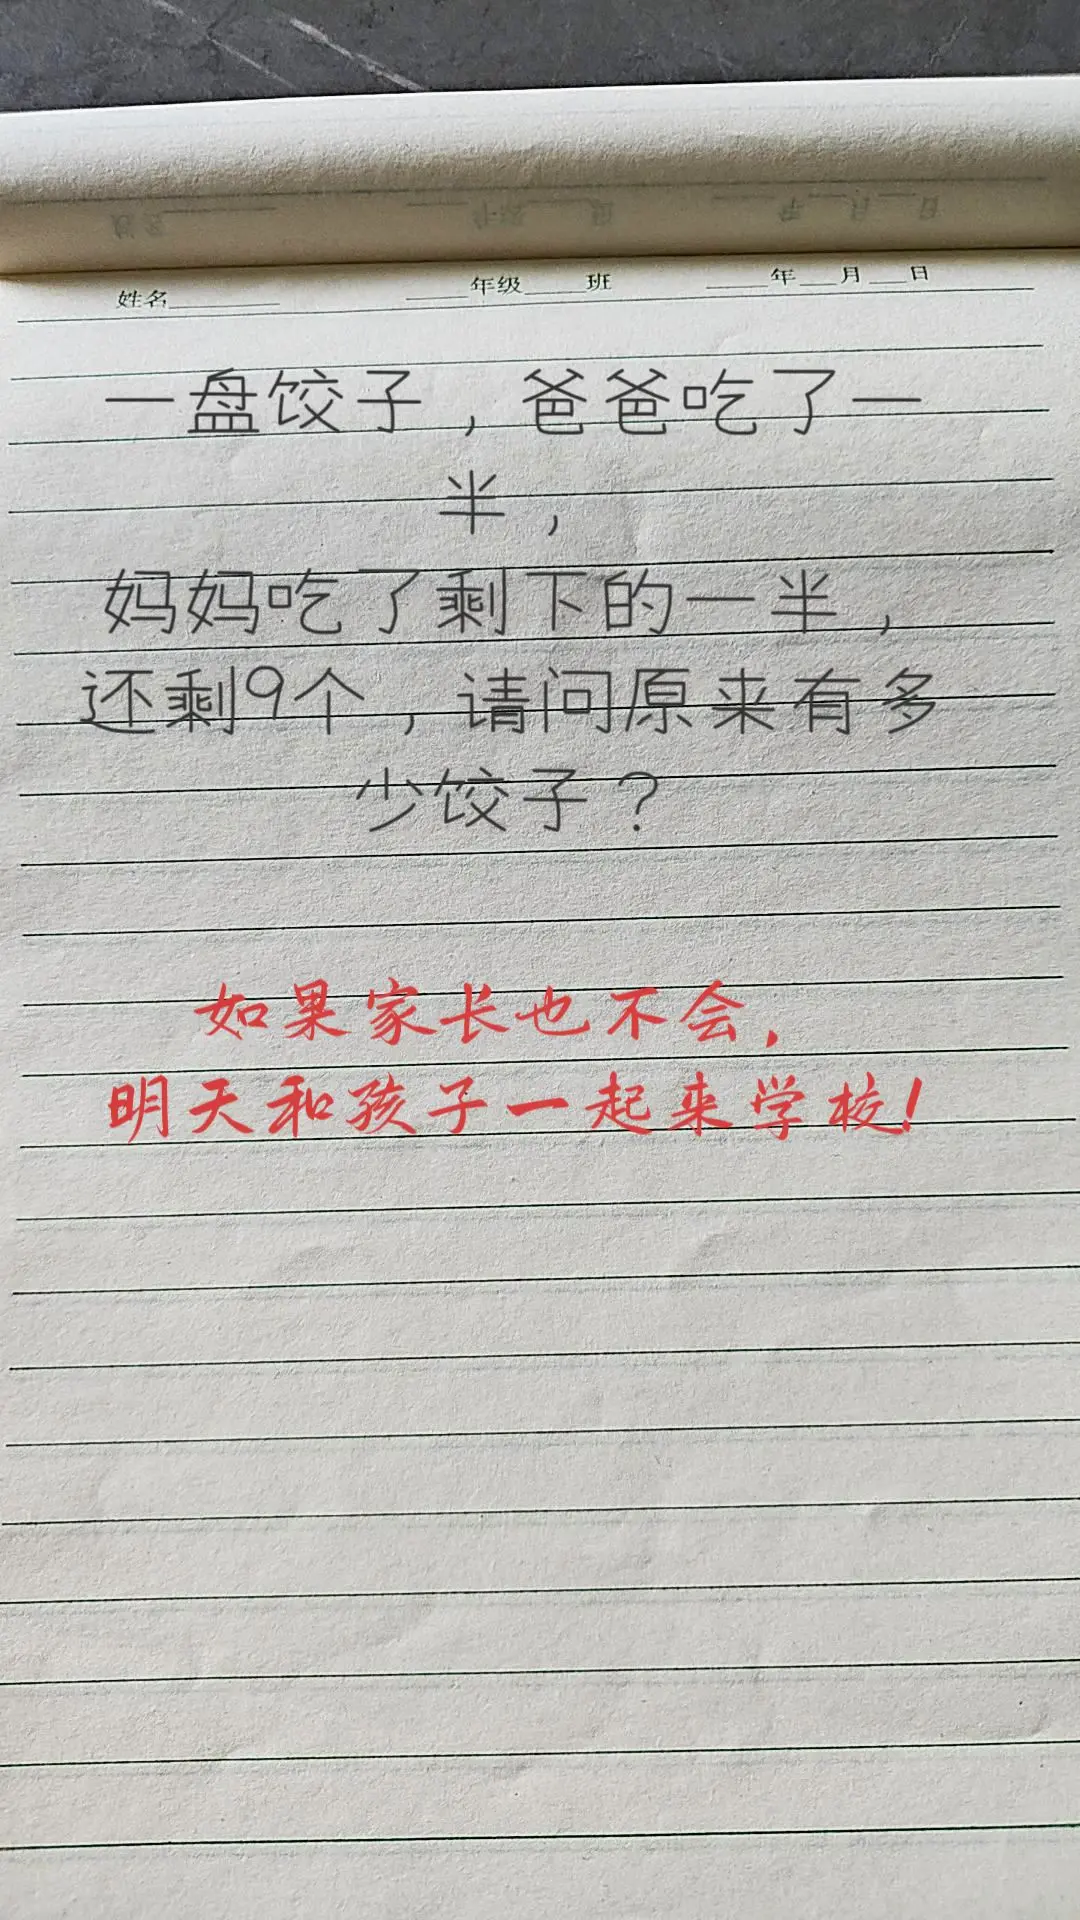 姓名 年级 班 年 月 日
一盘饺子，爸爸吃了一
半，
妈妈吃了剩下的一半，
还剩9个，请问原来有多
少饺子？
如果家长也不会，
明天和孩子一起来学校！